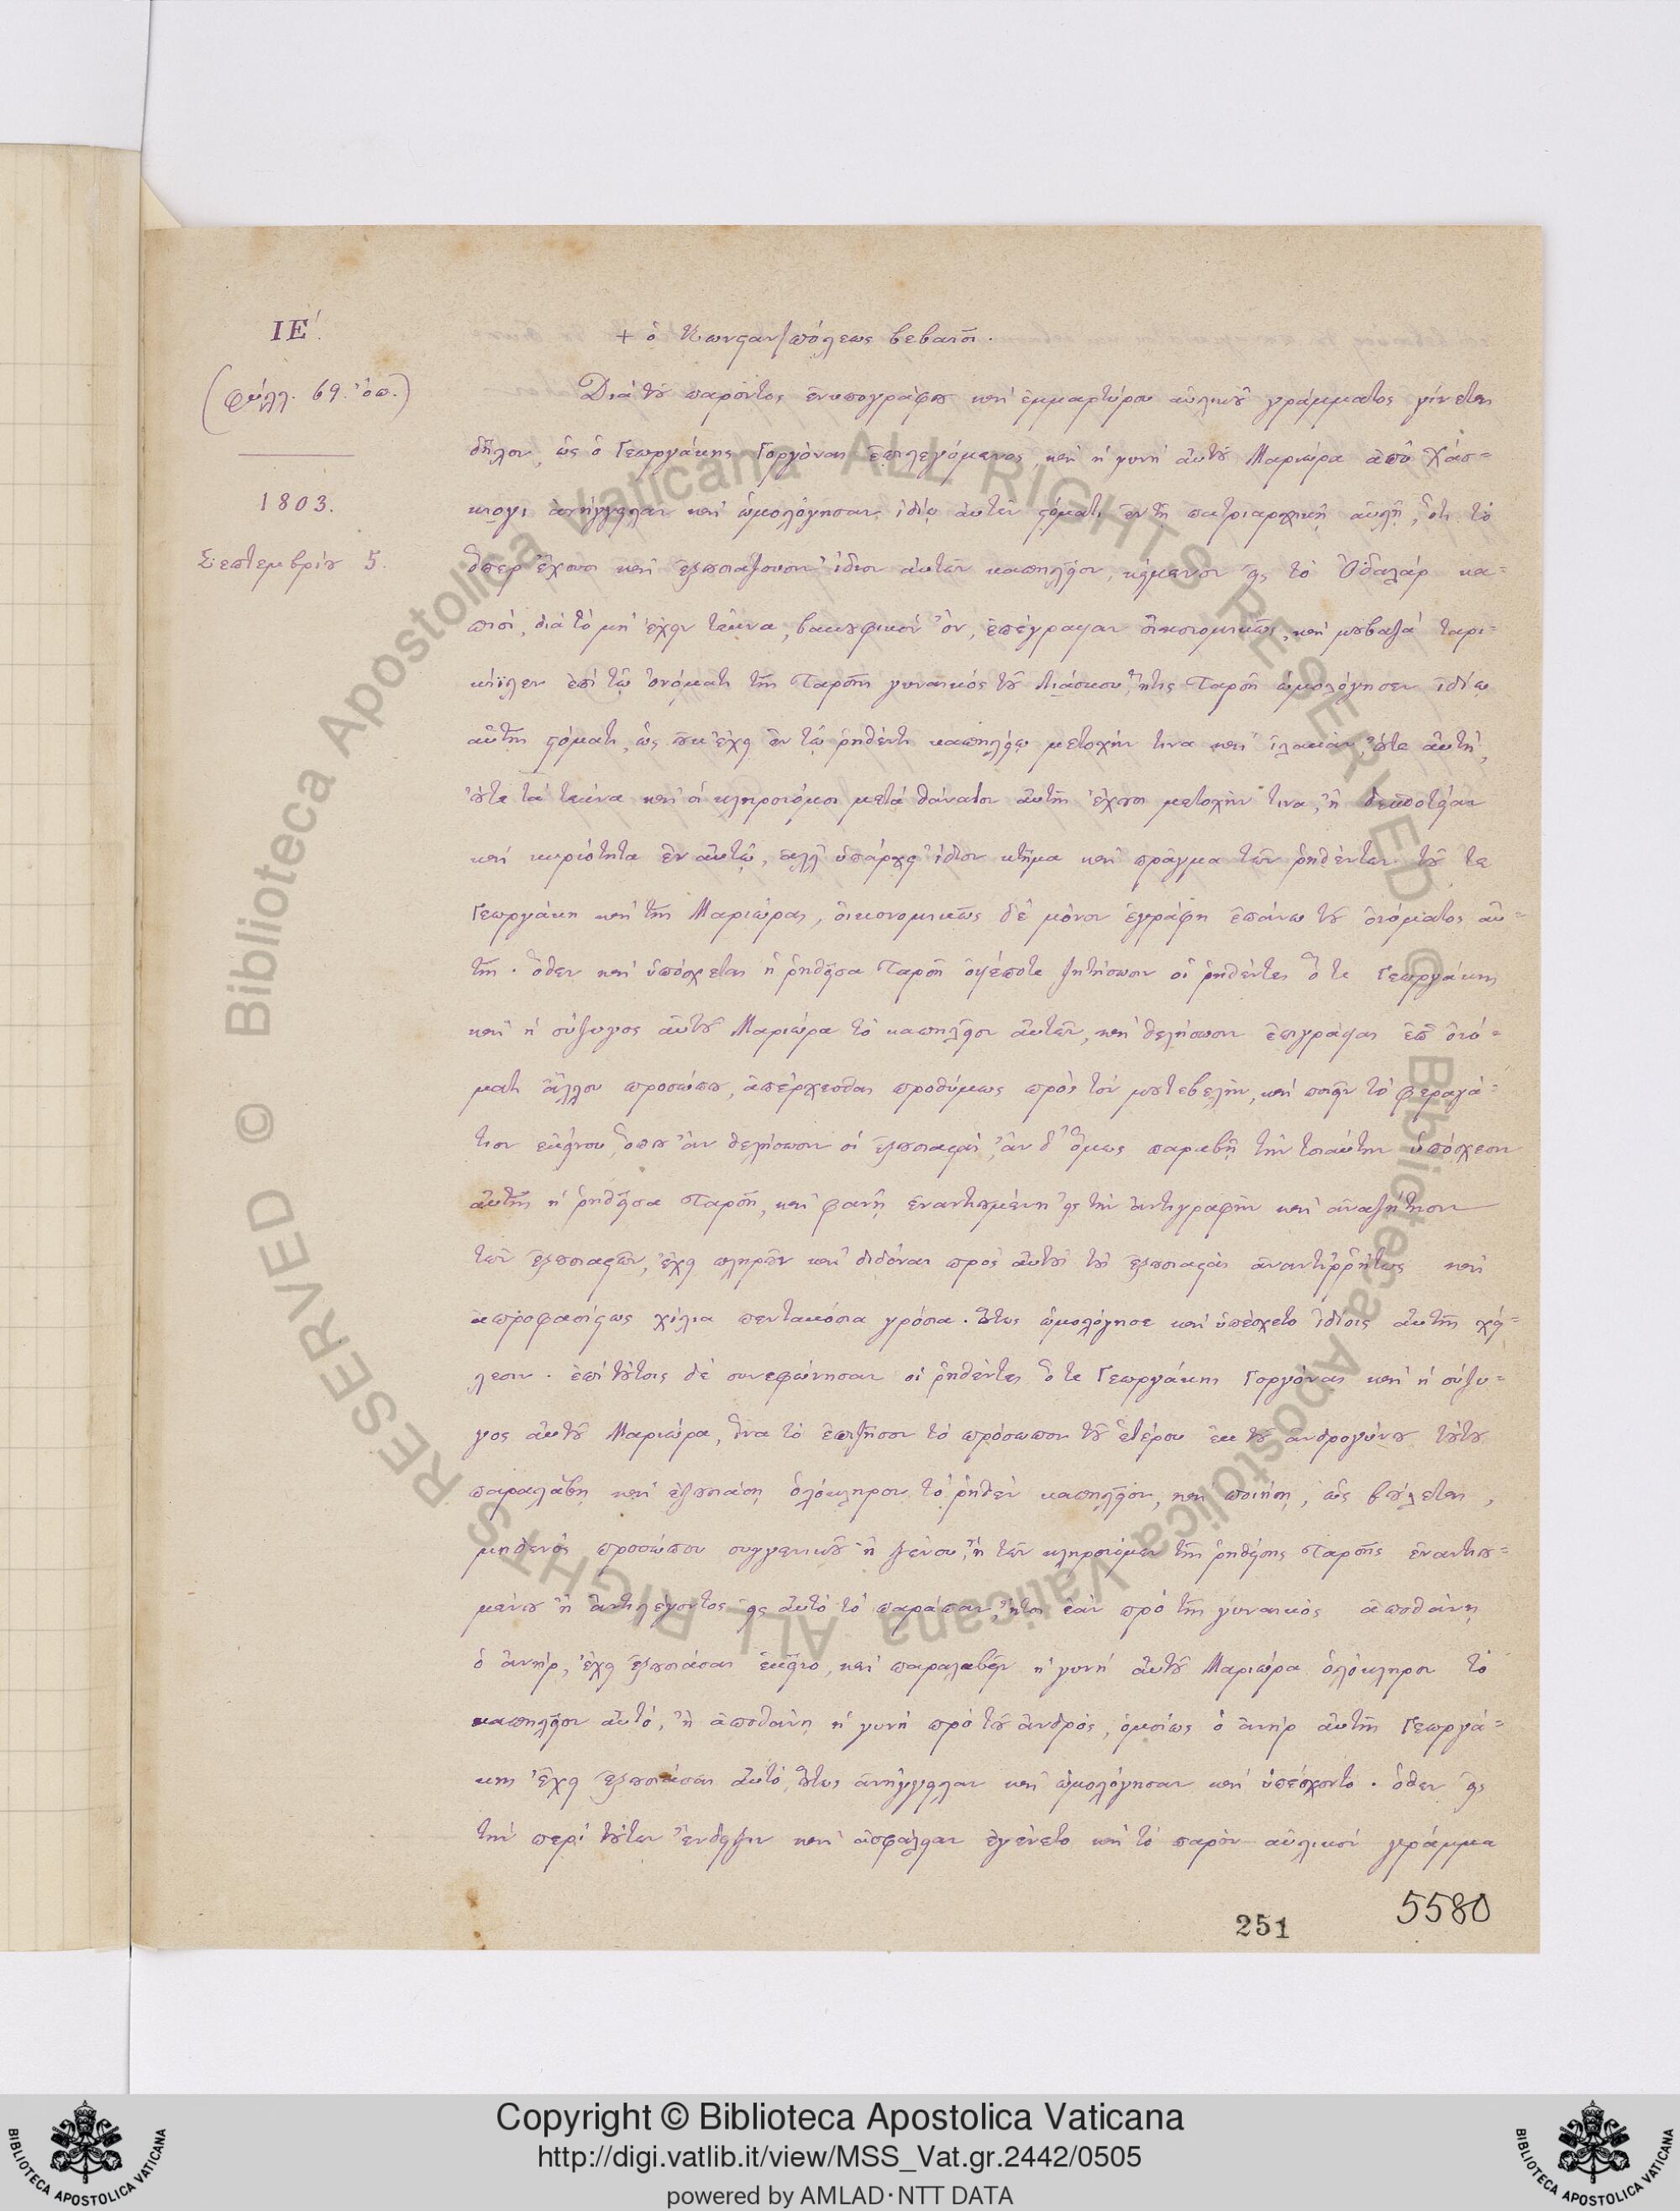 ΙΕ΄.
(φύλλ. 69. ὄπ.)
1803.
Σεπτεμβρίου 5.
+ ὁ Κωνσταν/πόλεως βεβαιοῖ.
Διὰ τοῦ παρόντος ἐνυπογράφου καὶ ἐμμαρτύρου αὐλικοῦ γράμματος γίνεται
δῆλον, ὡς ὁ Γεωργάκης Γοργόνας ἐπιλεγόμενος, καὶ ἡ γυνὴ αὐτοῦ Μαριώρα ἀπὸ Χάσ=
κιογι ἀνήγγειλαν καὶ ὡμολόγησαν ἰδίῳ αὐτῶν στόματι ἐν τῇ πατριαρχικῇ αὐλῇ, ὅτι τὸ
ὅπερ ἔχουσι καὶ ἐξουσιάζουσιν ἴδιον αὐτῶν καπηλεῖον, κείμενον εἰς τὸ Ὀδαλὰρ κα=
πισί, διὰ τὸ μὴ ἔχειν τέκνα, βακουφικὸν ὄν, ἐπέγραψαν οἰκονομικῶς, καὶ μουβαζὰ ταρι=
κιϊλεν ἐπὶ τῷ ὀνόματι τῆς Ταρσῆς γυναικὸς τοῦ Λιάσκου, ἥτις Ταρσῆ ὡμολόγησεν ἰδίῳ
αὐτῆς στόματι, ὡς οὐκ ἔχει ἐν τῷ ῥηθέντι καπηλείῳ μετοχήν τινα καὶ ἰλακάν, οὔτε αὐτή,
οὔτε τὰ τέκνα καὶ οἱ κληρονόμοι μετὰ θάνατον αὐτῆς ἔχουσι μετοχήν τινα, ἢ δεσποτείαν
καὶ κυριότητα ἐν αὐτῷ, ἀλλ' ὑπάρχει ἴδιον κτῆμα καὶ πρᾶγμα τῶν ῥηθέντων τοῦ τε
Γεωργάκη καὶ τῆς Μαριώρας, οἰκονομικῶς δὲ μόνον ἐγράφη ἐπάνω τοῦ ὀνόματος αὐ=
τῆς. ὅθεν καὶ ὑπόσχεται ἡ ῥηθεῖσα Ταρσῆ ὁψέποτε ζητήσωσιν οἱ ῥηθέντες ὅ τε Γεωργάκης
καὶ ἡ σύζυγος αὐτοῦ Μαριώρα τὸ καπηλεῖον αὐτῶν, καὶ θελήσωσιν ἐπιγράψαι ἐπ' ὀνό=
ματι ἄλλου προσώπου, ἀπέρχεσθαι προθύμως πρὸς τὸν μουτεβελῆν, καὶ ποιεῖν τὸ φεραγά=
τιον ἐκείνου, ὅπου ἂν θελήσωσιν οἱ ἐξουσιασταί, ἂν δ' ὅμως παραβῇ τὴν τοιαύτην ὑπόσχεσιν
αὐτῆς ἡ ῥηθεῖσα Ταρσῆ, καὶ φανῇ ἐναντιουμένη εἰς τὴν ἀντιγραφὴν καὶ ἀναζήτησιν
τῶν ἐξουσιαστῶν, ἔχει πληροῦν καὶ διδόναι πρὸς αὐτοὺς τοὺς ἐξουσιαστὰς ἀναντιῤῥήτως καὶ
ἀπροφασίστως χίλια πεντακόσια γρόσια. οὕτως ὡμολόγησε καὶ ὑπέσχετο ἰδίοις αὐτῆς χεί=
λεσιν. ἐπὶ τούτοις δὲ συνεφώνησαν οἱ ῥηθέντες ὅ τε Γεωργάκης Γοργόνας καὶ ἡ σύζυ=
γος αὐτοῦ Μαριώρα, ἵνα τὸ ἐπιζῆσον τὸ πρόσωπον τοῦ ἑτέρου ἐκ τοῦ ἀνδρογύνου τούτου
παραλάβῃ καὶ ἐξουσιάσῃ ὁλόκληρον τὸ ῥηθὲν καπηλεῖον, καὶ ποιήσῃ, ὡς βούλεται,
μηδενὸς προσώπου συγγενικοῦ ἢ ξένου, ἢ τῶν κληρονόμων τῆς ῥηθείσης Ταρσῆς ἐναντιου=
μένου ἢ ἀντιλέγοντος εἰς αὐτὸ τὸ παράπαν, ἤτοι ἐὰν πρὸ τῆς γυναικὸς ἀποθάνῃ
ὁ ἀνήρ, ἔχει ἐξουσιάσαι ἐκεῖνο, καὶ παραλαβεῖν ἡ γυνὴ αὐτοῦ Μαριώρα ὁλόκληρον τὸ
καπηλεῖον αὐτό, ἢ ἀποθάνῃ ἡ γυνὴ πρὸ τοῦ ἀνδρός, ὁμοίως ὁ ἀνὴρ αὐτῆς Γεωργά=
κης ἔχει ἐξουσιάσαι αὐτό, οὕτως ἀνήγγειλαν καὶ ὡμολόγησαν καὶ ὑπέσχοντο. ὅθεν εἰς
τὴν περὶ τούτων ἔνδειξιν καὶ ἀσφάλειαν ἐγένετο καὶ τὸ παρὸν αὐλικὸν γράμμα
251
5580
© Biblioteca Apostolica Vaticana ALL RIGHTS RESERVED © Biblioteca Apostolica Vaticana ALL RIGHTS RESERVED
BIBLIOTECA APOSTOLICA VATICANA
Copyright © Biblioteca Apostolica Vaticana
http://digi.vatlib.it/view/MSS_Vat.gr.2442/0505
powered by AMLAD·NTT DATA
BIBLIOTECA APOSTOLICA VATICANA